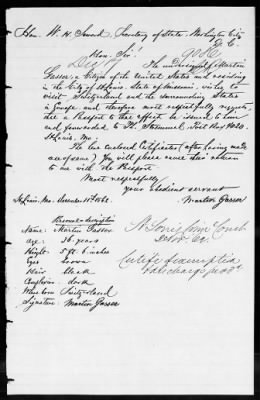 Hon. W. H. Seward, Secretary of State, Washington City
D. C.
Hon. Sir!
Dec 17
The undersigned Martin
Gasser, a Citizen of the United States and residing
in the City of St Louis, State of Missouri, wishes to
visit Switzerland and the surrounding States
in Europe and therefore most respectfully requests,
that a Passport to that effect be issued to him
and forwarded to Th. Stemmel, Post Box
St Louis, Mo.
The two enclosed Certificates (after having made
use of same) You will please cause their return
to me with the Passport
Most respectfully
your obedient servant
St Louis, Mo. December 11th 1862. Martin Gasser
Personal description
Name: Martin Gasser
age: 36 years
Hight: 5 ft. 6 inches
Eyes: brown
Hair: black
Complexion: dark
Where born Switzerland
Signature: Martin Gasser
St Louis Crim Court